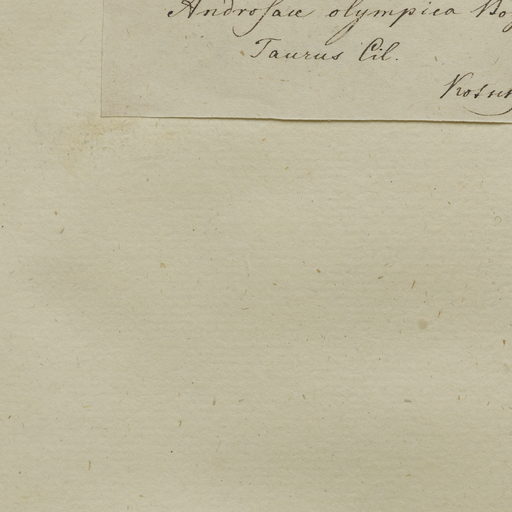 Androsace olympica Bo
Taurus Cil.
Kotsch